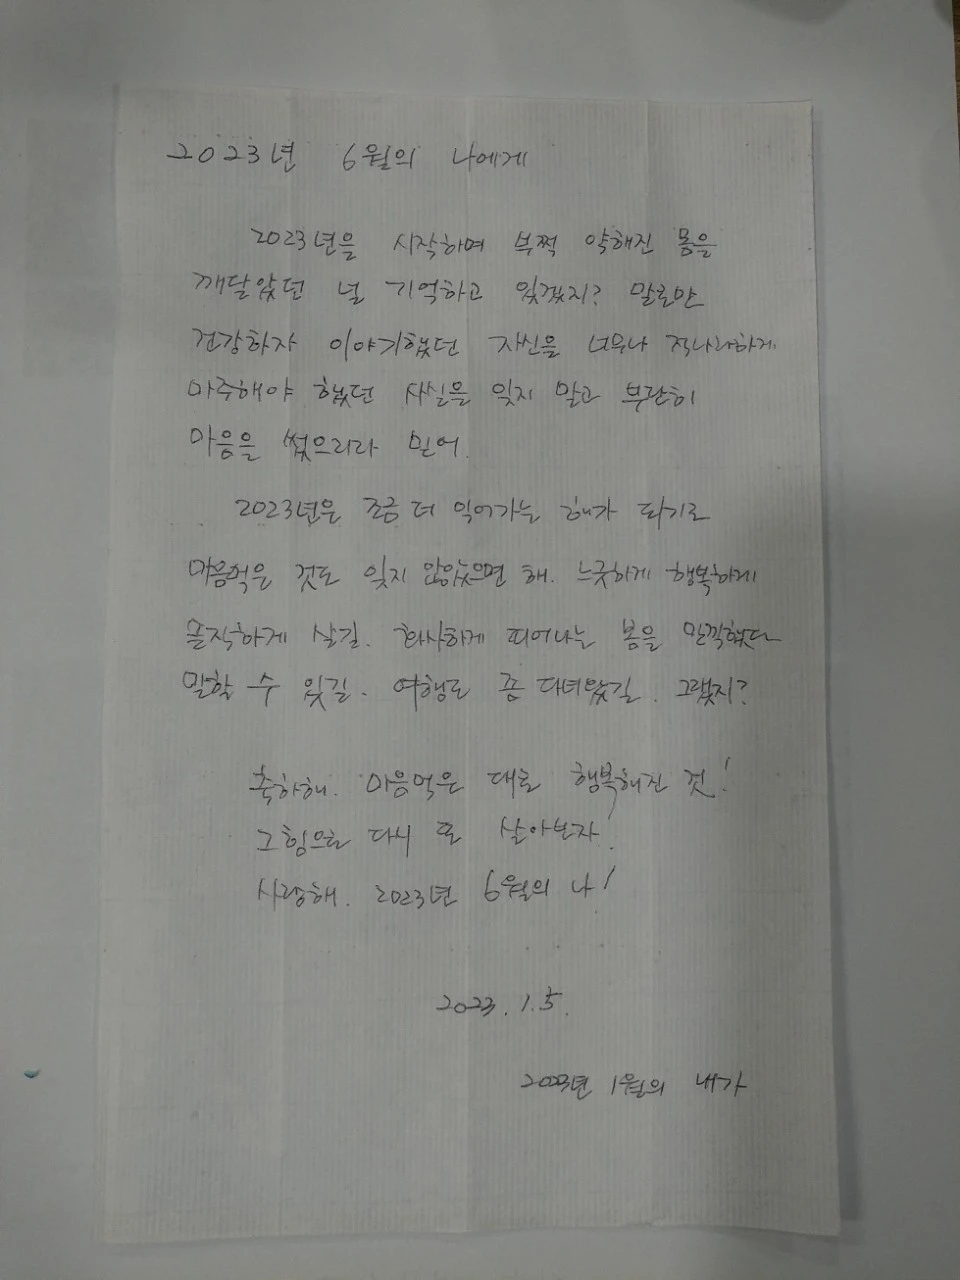 2023년 6월의 나에게
2023년을 시작하며 부쩍 약해진 몸을
깨달았던 널 기억하고 있겠지? 말로만
건강하자 이야기했던 자신을 너무나 적나라하게
마주해야 했던 사실을 잊지 말고 부단히
마음을 썼으리라 믿어.
2023년은 조금 더 익어가는 해가 되기로
마음먹은 것도 잊지 않았으면 해. 느긋하게 행복하게
솔직하게 살길. 화사하게 피어나는 봄을 만끽했다
말할 수 있길. 여행도 좀 다녀왔길. 그랬지?
축하해. 마음먹은 대로 행복해진 것!
그 힘으로 다시 또 살아보자!
사랑해. 2023년 6월의 나!
2023. 1. 5.
2023년 1월의 내가